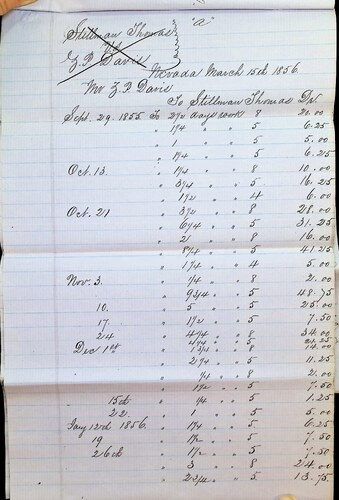 "A"
Stillman Thomas
vs
Z. P. Davis
Nevada March 15th 1856.
Mr Z. P. Davis
To Stillman Thomas Dr.
Sept. 29. 1855 To 2 1/2 days work 8 20.00
" 1 1/4 " " 5 6.25
" 1 " " 5 5.00
" 1 1/4 " " 5 6.25
Oct. 13. " 1 1/4 " " 8 10.00
" 3 1/4 " " 5 16.25
" 1 1/2 " " 4 6.00
Oct. 21 " 3 1/2 " " 8 28.00
" 6 1/4 " " 5 31.25
" 2 " " 8 16.00
" 8 1/4 " " 5 41.25
" 1 1/4 " " 4 5.00
Nov. 3. " 1/4 " " 8 2.00
" 9 3/4 " " 5 48.75
10. " 5 " " 5 25.00
17. " 1 1/2 " " 5 7.50
24 " 4 1/4 " " 8 34.00
" 4 1/4 " " 5 21.25
Dec 1st " 1 3/4 " " 8 14.00
" 2 1/4 " " 5 11.25
" 1/4 " " 8 2.00
" 1 1/2 " " 5 7.50
" 15th " 1/4 " " 5 1.25
" 22. " 1 " " 5 5.00
Jany 12th 1856. " 1 1/4 " " 5 6.25
" 19 " 1 1/2 " " 5 7.50
" 26th " 1 1/2 " " 5 7.50
" 3 " " 8 24.00
" 2 3/4 " " 5 13.75